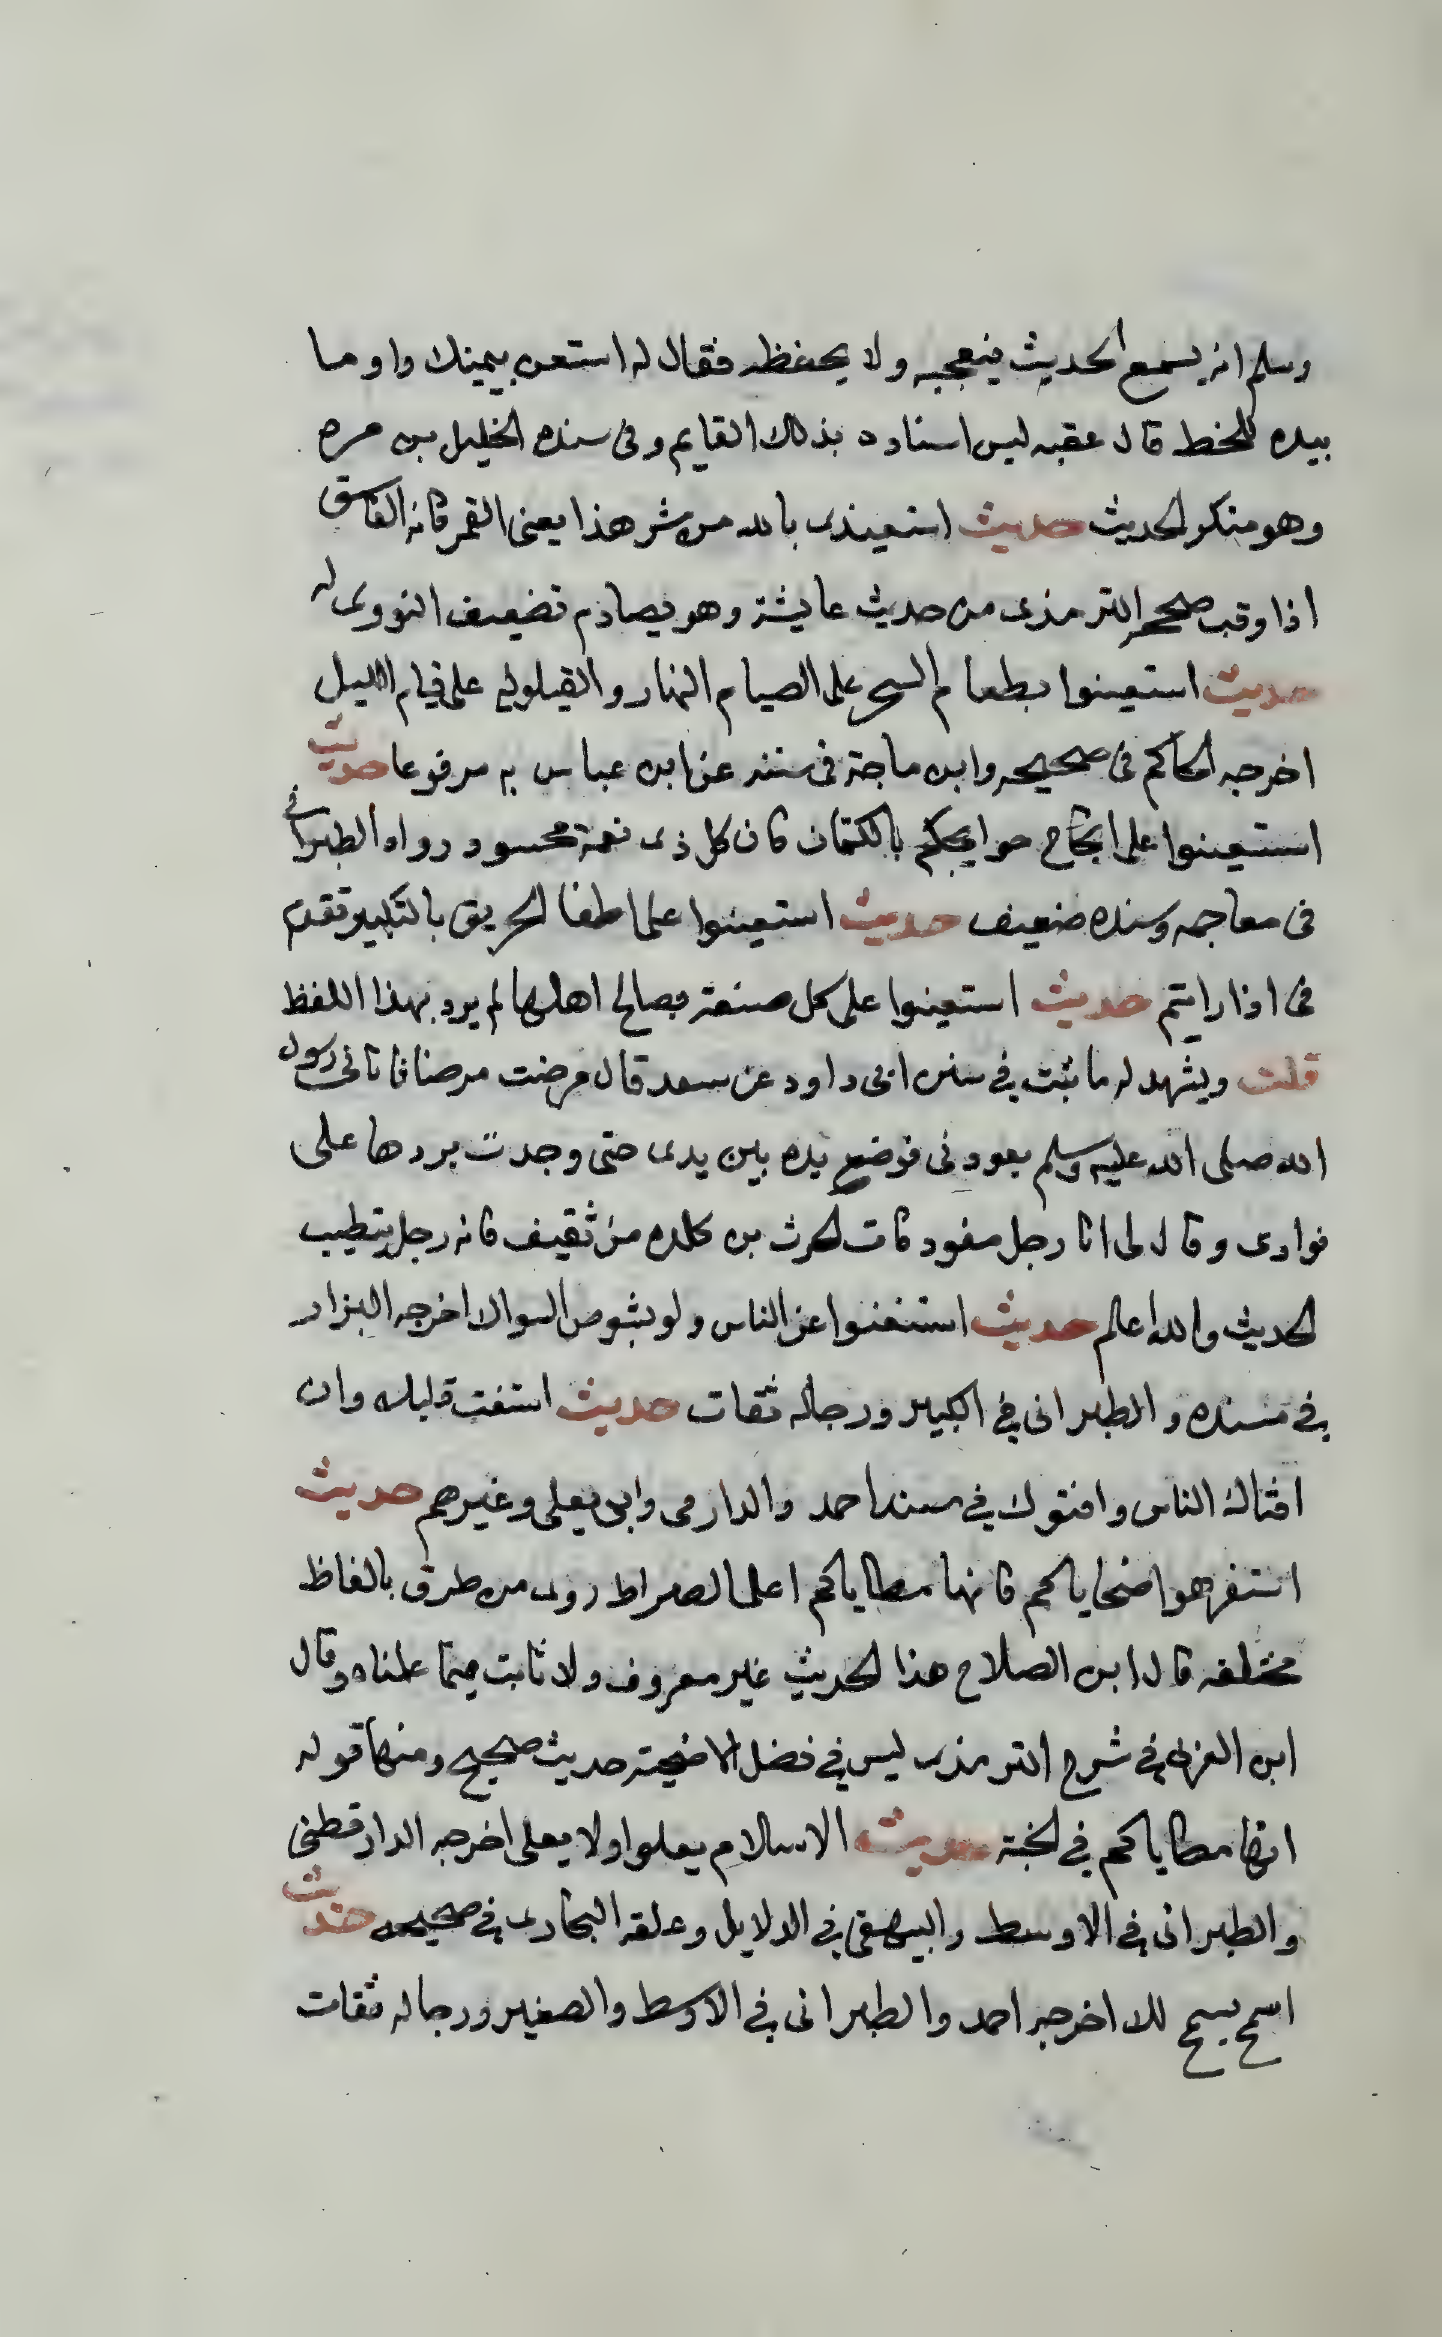 وسلم انه يسمع الحديث فيعجبه ولا يحفظه فقال له استعن بيمينك واوما
بيده للخط قال عقبه ليس اسناده بذلك القايم وفى سنده الخليل بن مره
وهو منكر الحديث حديث استعيذى بالله من شر هذا يعنى القمر فانه الغاسق
اذا وقب صححه الترمذى من حديث عايشة وهو يصادم تضعيف النووى له
حديث استعينوا بطعام السحر على الصيام النهار والقيلوله على قيام الليل
اخرجه الحاكم فى صحيحه وابن ماجة فى سننه عن ابن عباس به مرفوعا حديث
استعينوا على انجاح حوايجكم بالكتمان فان كل ذى نعمة محسود رواه الطبرانى
فى معاجمه وسنده ضعيف حديث استعينوا على اطفا الحريق بالتكبير تقدم
فى اذا رايتم حديث استعينوا على كل صنعة بصالح اهلها لم يرد بهذا اللفظ
قلت ويشهد له ما ثبت في سنن ابى داود عن سعد قال مرضت مرضا فاتانى رسول
الله صلى الله عليه وسلم يعودنى فوضع يده بين يدى حتى وجدت بردها على
فوادى وقال لى انا رجل مفود فات الحرث بن كلده من ثقيف فانه رجل يتطيب
الحديث والله اعالم حديث استغنوا عن الناس ولو بشوص السوال اخرجه البزار
في مسنده والطبرانى في الكبير ورجاله ثقات حديث استفت قلبك وان
افتاك الناس وافتوك في مسند احمد والدارمى وابى يعلى وغيرهم حديث
استفرهوا ضحاياكم فانها مطاياكم اعلى الصراط روى من طرق بالفاظ
مختلفه قال ابن الصلاح هذا الحديث غير معروف ولا ثابت فيما علمناه وقال
ابن العربى في شرح الترمذى ليس في فضل الاضحية حديث صحيح ومنها قوله
انها مطاياكم في الجنة حديث الاسلام يعلوا ولا يعلى اخرجه الدارقطنى
والطبرانى في الاوسط والبيهقى في الدلايل وعلقه البخارى في صحيحه حديث
اسمح يسمح لك اخرجه احمد والطبرانى في الاوسط والصغير ورجاله ثقات